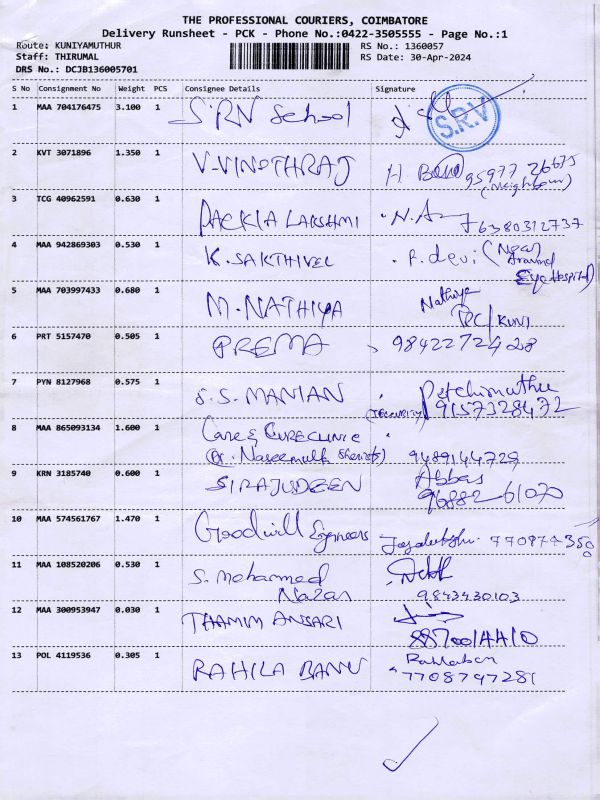 THE PROFESSIONAL COURIERS, COIMBATORE
Delivery Runsheet - PCK - Phone No.:0422-3505555 - Page No.:1
Route: KUNIYAMUTHUR RS No.: 1360057
Staff: THIRUMAL RS Date: 30-Apr-2024
DRS No.: DCJB136005701
S No Consignment No Weight PCS Consignee Details Signature
1 MAA 704176475 3.100 1 SRN School S.R.V
2 KVT 3071896 1.350 1 V-VINOTHRAJ
95977 26675
(Neighbour)
3 TCG 40962591 0.630 1 PACKIA LAKSHMI 6380312737
4 MAA 942869303 0.530 1 K.SAKTHIVEL P. devi (Near
Aravind
Eye Hospital)
5 MAA 703997433 0.680 1 M.NATHIYA Nathiya
6 PRT 5157470 0.505 1 PREMA 9842272428
7 PYN 8127968 0.575 1 S.S. MANIAN Petchimuthu
(Security) 9157328472
8 MAA 865093134 1.600 1 Care & CURE CLINIC
9489144729
9 KRN 3185740 0.600 1 SIRAJUDEEN Abbas
96882 61070
10 MAA 574561767 1.470 1 Goodwill Engineers
11 MAA 108520206 0.530 1 S. Mohammed
Nazar 9843430103
12 MAA 300953947 0.030 1 THAMIM ANSARI
8870014410
13 POL 4119536 0.305 1 RAHILA BANU
7708797281